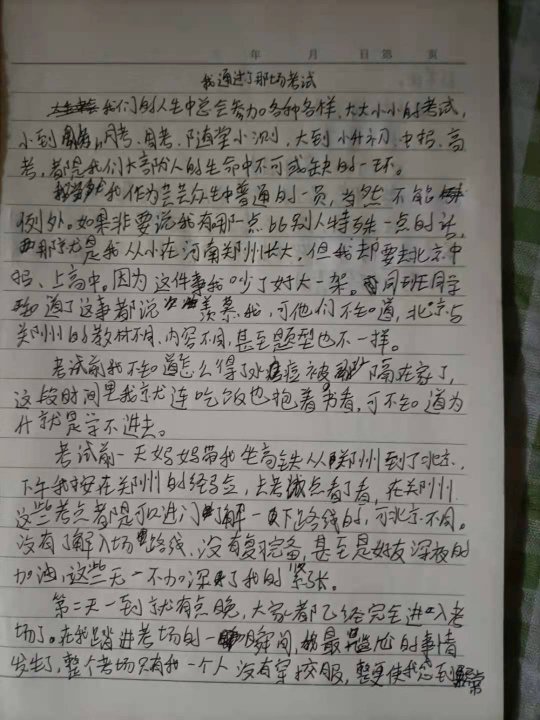 年 月 日 第 页
我通过了那场考试
我们的人生中总会参加各种各样,大大小小的考试,
小到周考、随堂小测,大到小升初、中招、高
考,都是我们大部分人的生命中不可或缺的一环。
我作为芸芸众生中普通的一员,当然不能
例外。如果非要说我有哪一点比别人特殊一点的话,
那就是我从小在河南郑州长大,但我却要去北京中
招、上高中。因为这件事我吵了好大一架。同班同学
知道了这事都说羡慕我,可他们不知道,北京与
郑州的教材不同,内容不同,甚至题型也不一样。
考试前我不知道怎么得了水痘被隔在家了,
这段时间里我就连吃饭也抱着书看,可不知道为
什就是学不进去。
考试前一天妈妈带我坐高铁从郑州到了北京,
下午我按在郑州的经验,去考点看了看,在郑州
这些考点都是可以进门了解一下路线的,可北京不同。
没有了解入场路线,没有复习完备,甚至是好友深夜的
加油,这些无一不加深了我的紧张。
第二天一到了就有点晚,大家都已经完全进入考
场了。在我踏进考场的一瞬间,最尴尬的事情
发生了,整个考场只有我一个人没有穿校服,更使我感到